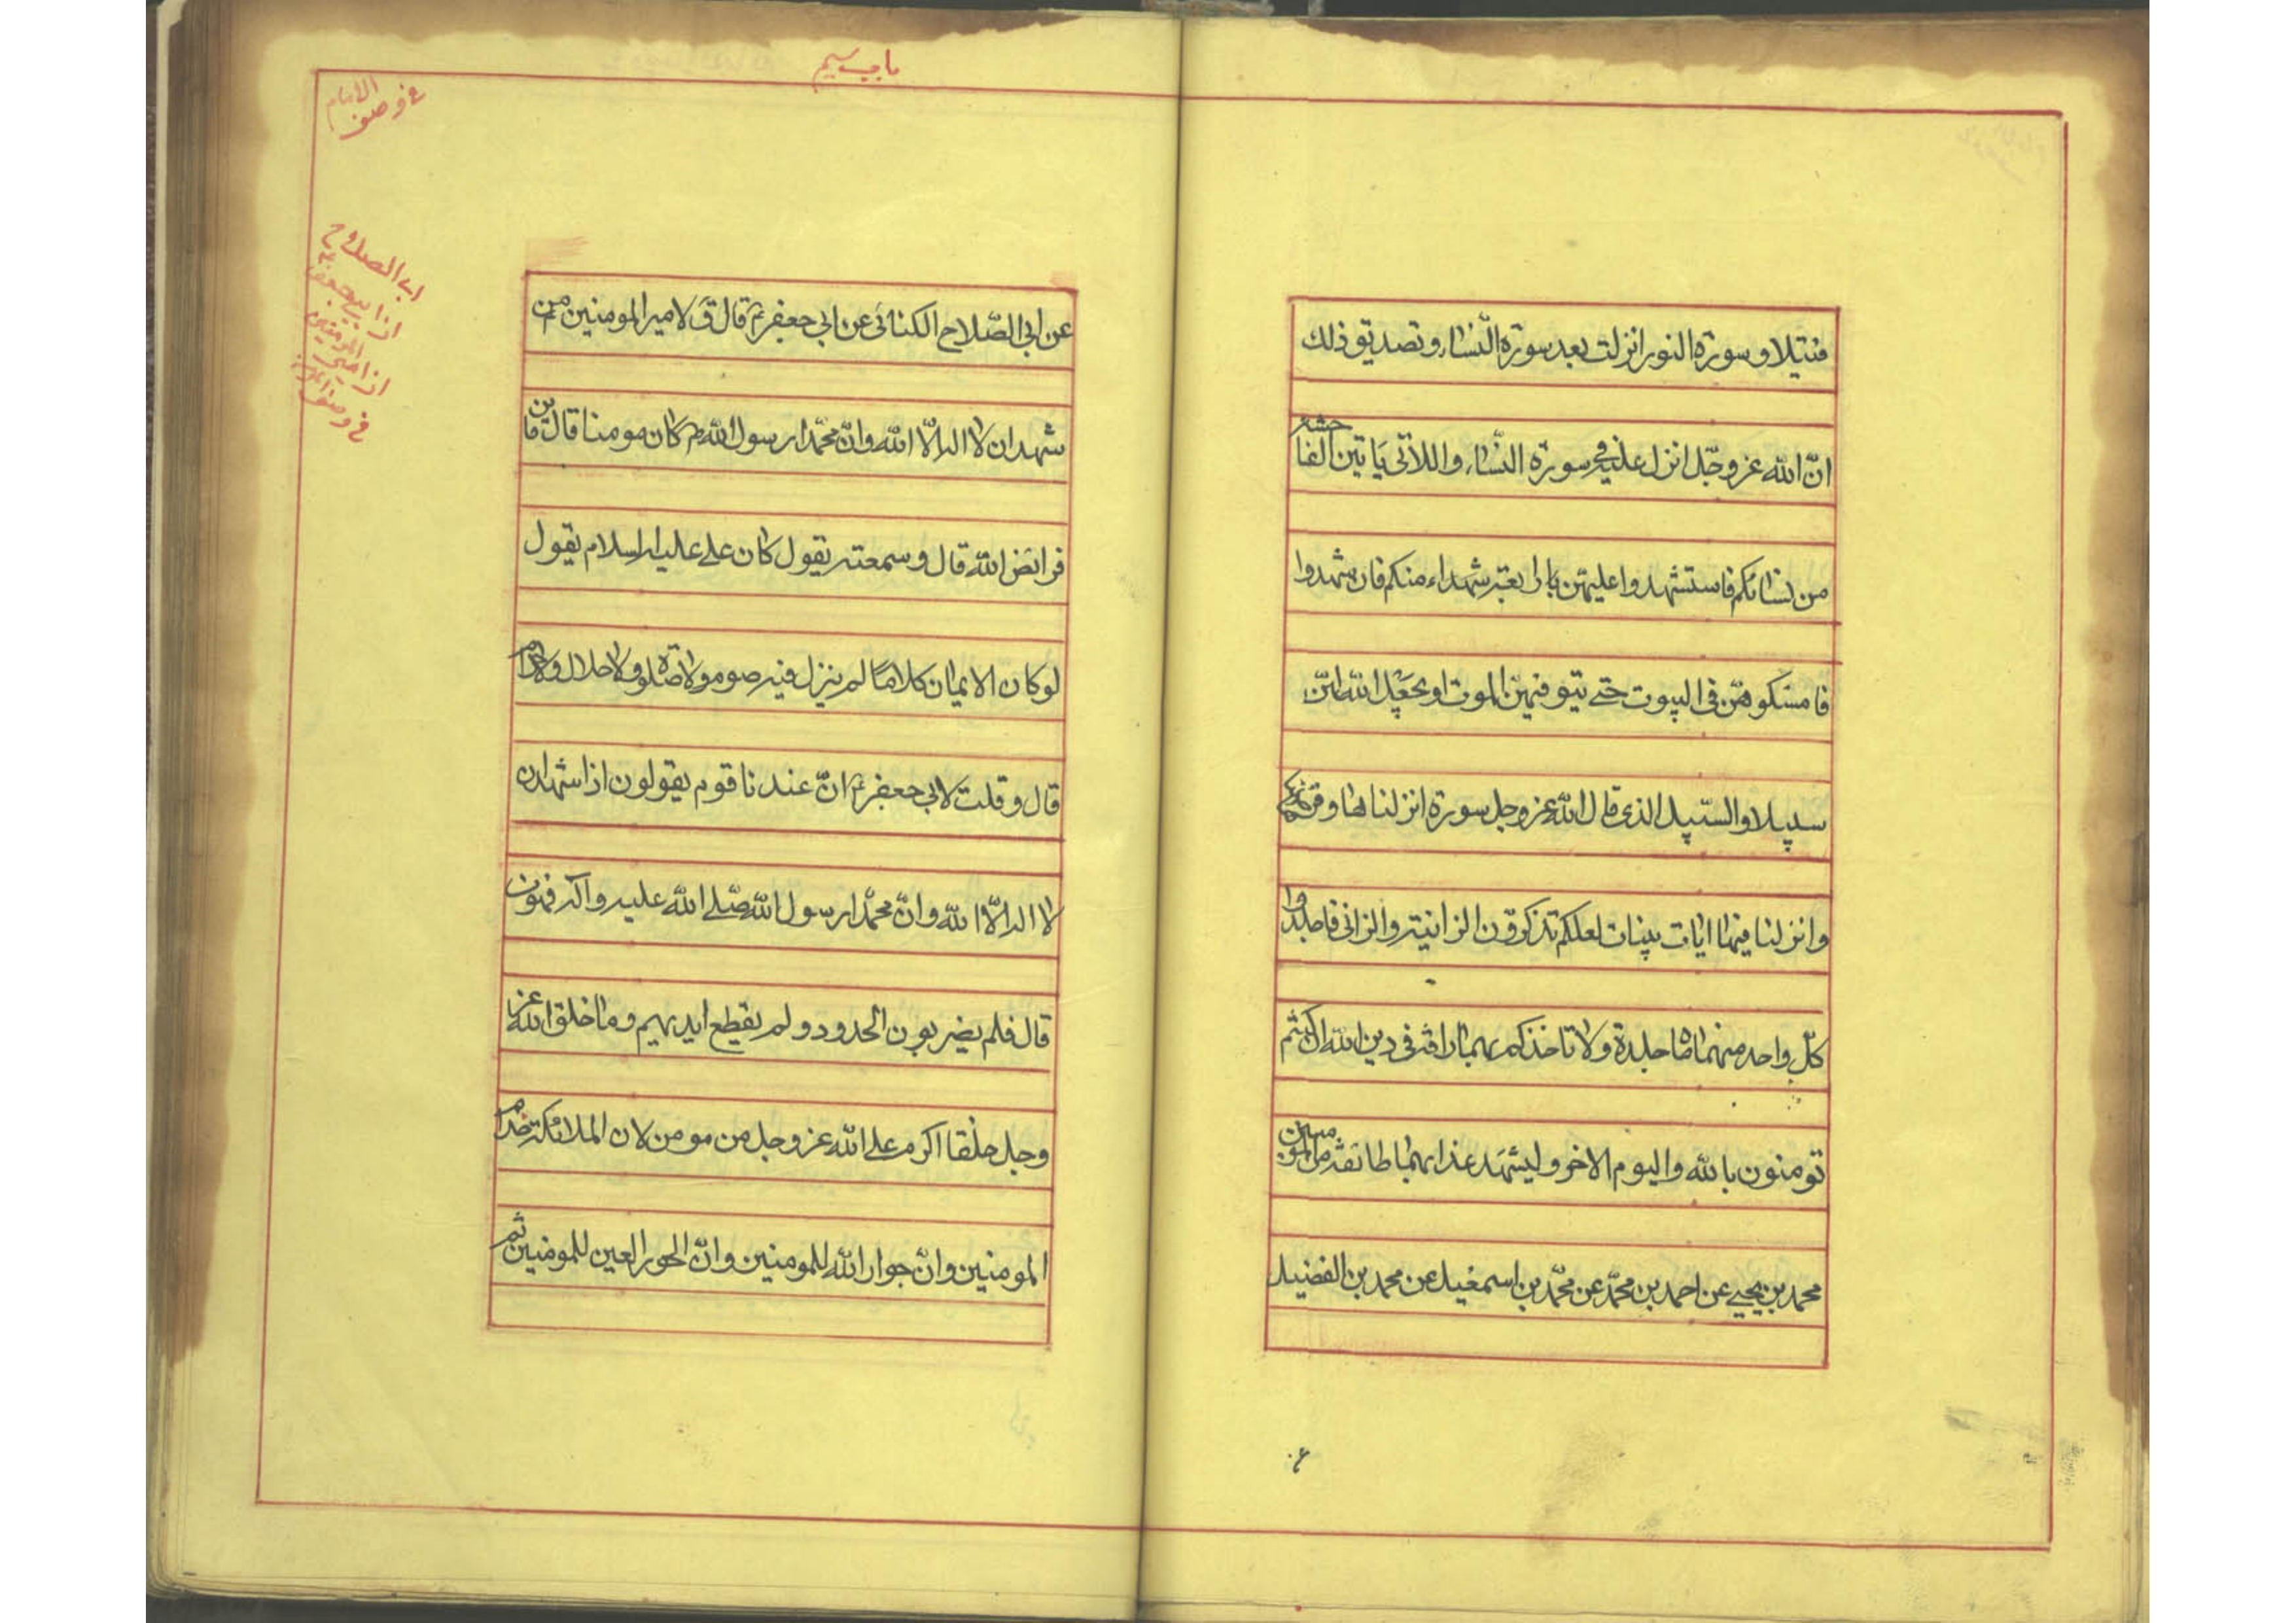 فتيلا و سورة النور انزلت بعد سورة النساء و تصديق ذلك
انّ الله عز وجّل انزل عليه في سورة النّساء و اللاتى يَاتين الفاحشة
من نسائكم فاستشهدوا عليهّن باربعة شهداء منكم فان شهدوا
فامسكوهّن فى البيوت حتے يتوفيهّن الموت او يجعَل الله لهّن
سبيلا و السّبيل الذى قال الله عز وجل سورة انزلناها و فرضناها
و انزلنا فيها ايات بينات لعلكم تذكرون الزانية و الزانى فاجلدوا
كلّ واحد منهما مائة جلدة ولا تاخذكم بهما رافة فى دين الله ان كنتم
تومنون بالله و اليوم الاخر و ليشهَد عذابهما طائفة من المومنين
محمد بن يحيے عن احمد بن محّمد عن محّمد بن اسمعيل عن محمد بن الفضيل
باب سيم
في وصف الامام
عن ابى الصّلاح الكنانَى عن ابى جعفرؑ قال قَ لامير المومنينؑ من
شهد ان لا اله الّا الله و انّ محّمدا رسول اللهؐ كان مومنا قال فاين
فرائض الله قال و سمعته يقول كان علے عليه السلام يقول
لو كان الايمان كلامًا لم ينزل فيه صوم ولا صلوة ولا حلال ولا حرام
قال و قلت لابى جعفرؑ انّ عندنا قوم يقولون اذا شهد ان
لا اله الّا الله و انّ محّمدا رسول الله صّلے الله عليه و اله فهو مومن
قال فلم يضربون الحدود و لم يقطع ايديهم و ما خلق الله عز
و جل خلقا اكرم علے الله عز و جل من مومن لان الملائكة خدام
المومنين و انّ جوار الله للمومنين و انّ الحور العين للمومنين ثم